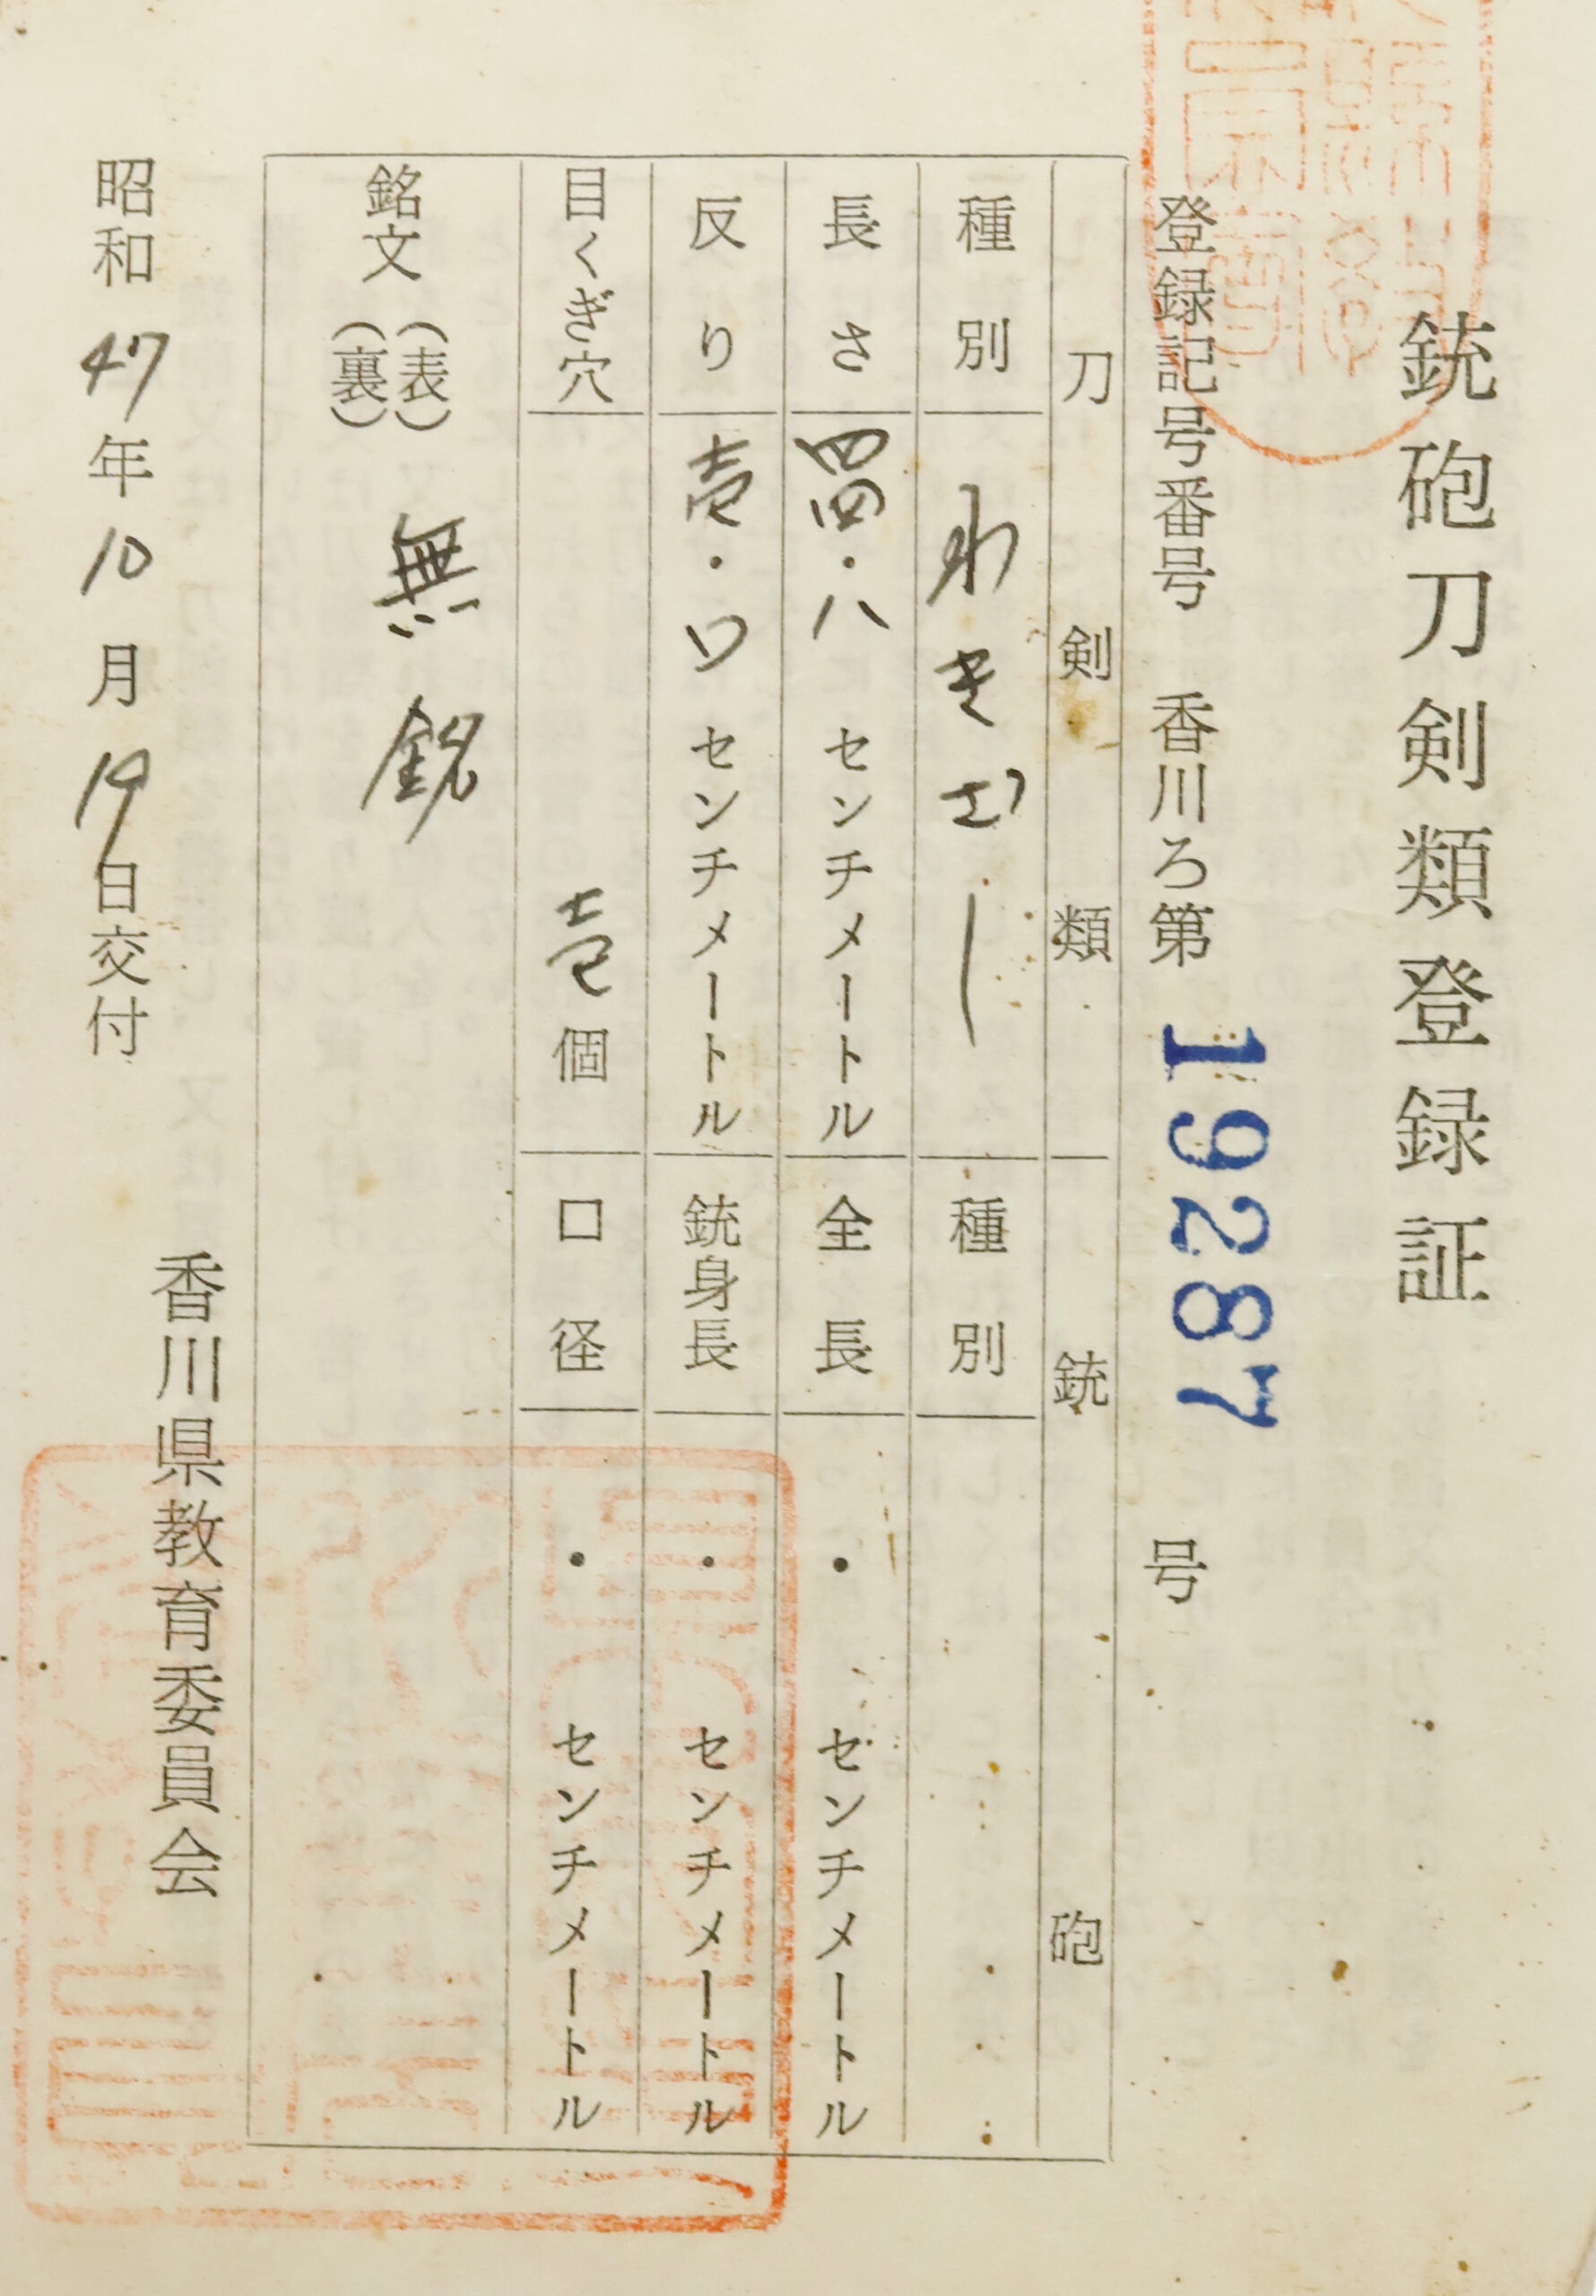 銃砲刀剣類登録証
登録記号番号 香川ろ第 19287 号
刀剣類 銃砲
種別 わきざし 種別
長さ 四四・八 センチメートル 全長 ・ センチメートル
反り 壱・〇 センチメートル 銃身長 ・ センチメートル
目くぎ穴 壱個 口径 ・ センチメートル
銘文 (表) 無銘
(裏)
香川県教育委員会
昭和47年10月19日交付